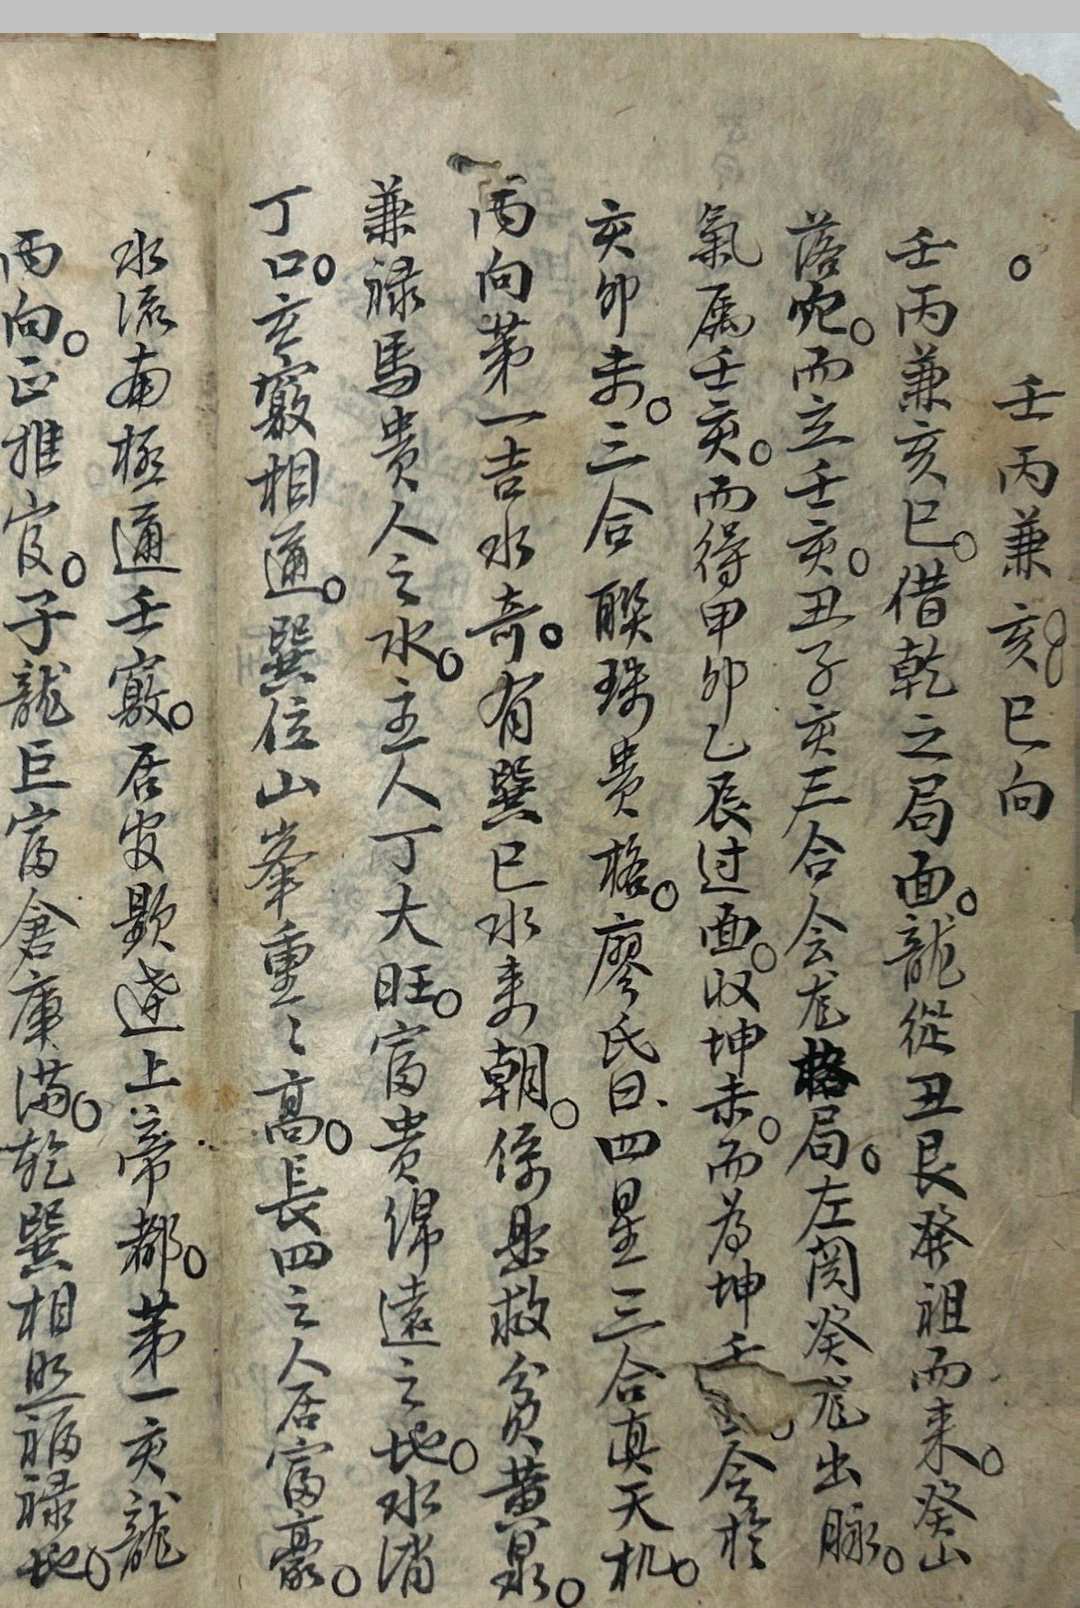 壬丙兼亥巳向
壬丙兼亥巳。借乾之局面。龍從丑艮發祖而来。癸山
落吃。而立壬亥。丑子亥三合会龙格局。左関癸龙出脉。
氣属壬亥。而得甲卯乙辰过面。収坤未。而为坤壬合於
亥卯未。三合聯珠贵格。廖氏曰、四星三合真天机。
丙向第一吉水奇。有巽巳水来朝。係是救贫黄泉。
兼禄馬贵人之水。主人丁大旺。富贵绵遠之地。水消
丁口。玄竅相通。巽位山峯重〻高。長四之人居富豪。
水流南極通壬竅。居安歇逹上帝都。第一亥龍
丙向。正推官。子龍巨富倉庫满。乾巽相照福禄地。